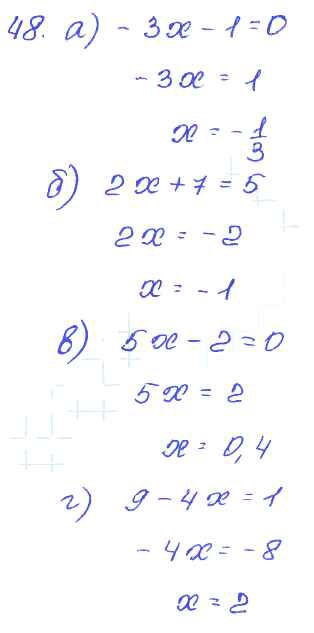 48. а) - 3x - 1 = 0
- 3x = 1
x = - 1/3
б) 2x + 7 = 5
2x = - 2
x = - 1
в) 5x - 2 = 0
5x = 2
x = 0,4
г) 9 - 4x = 1
- 4x = - 8
x = 2